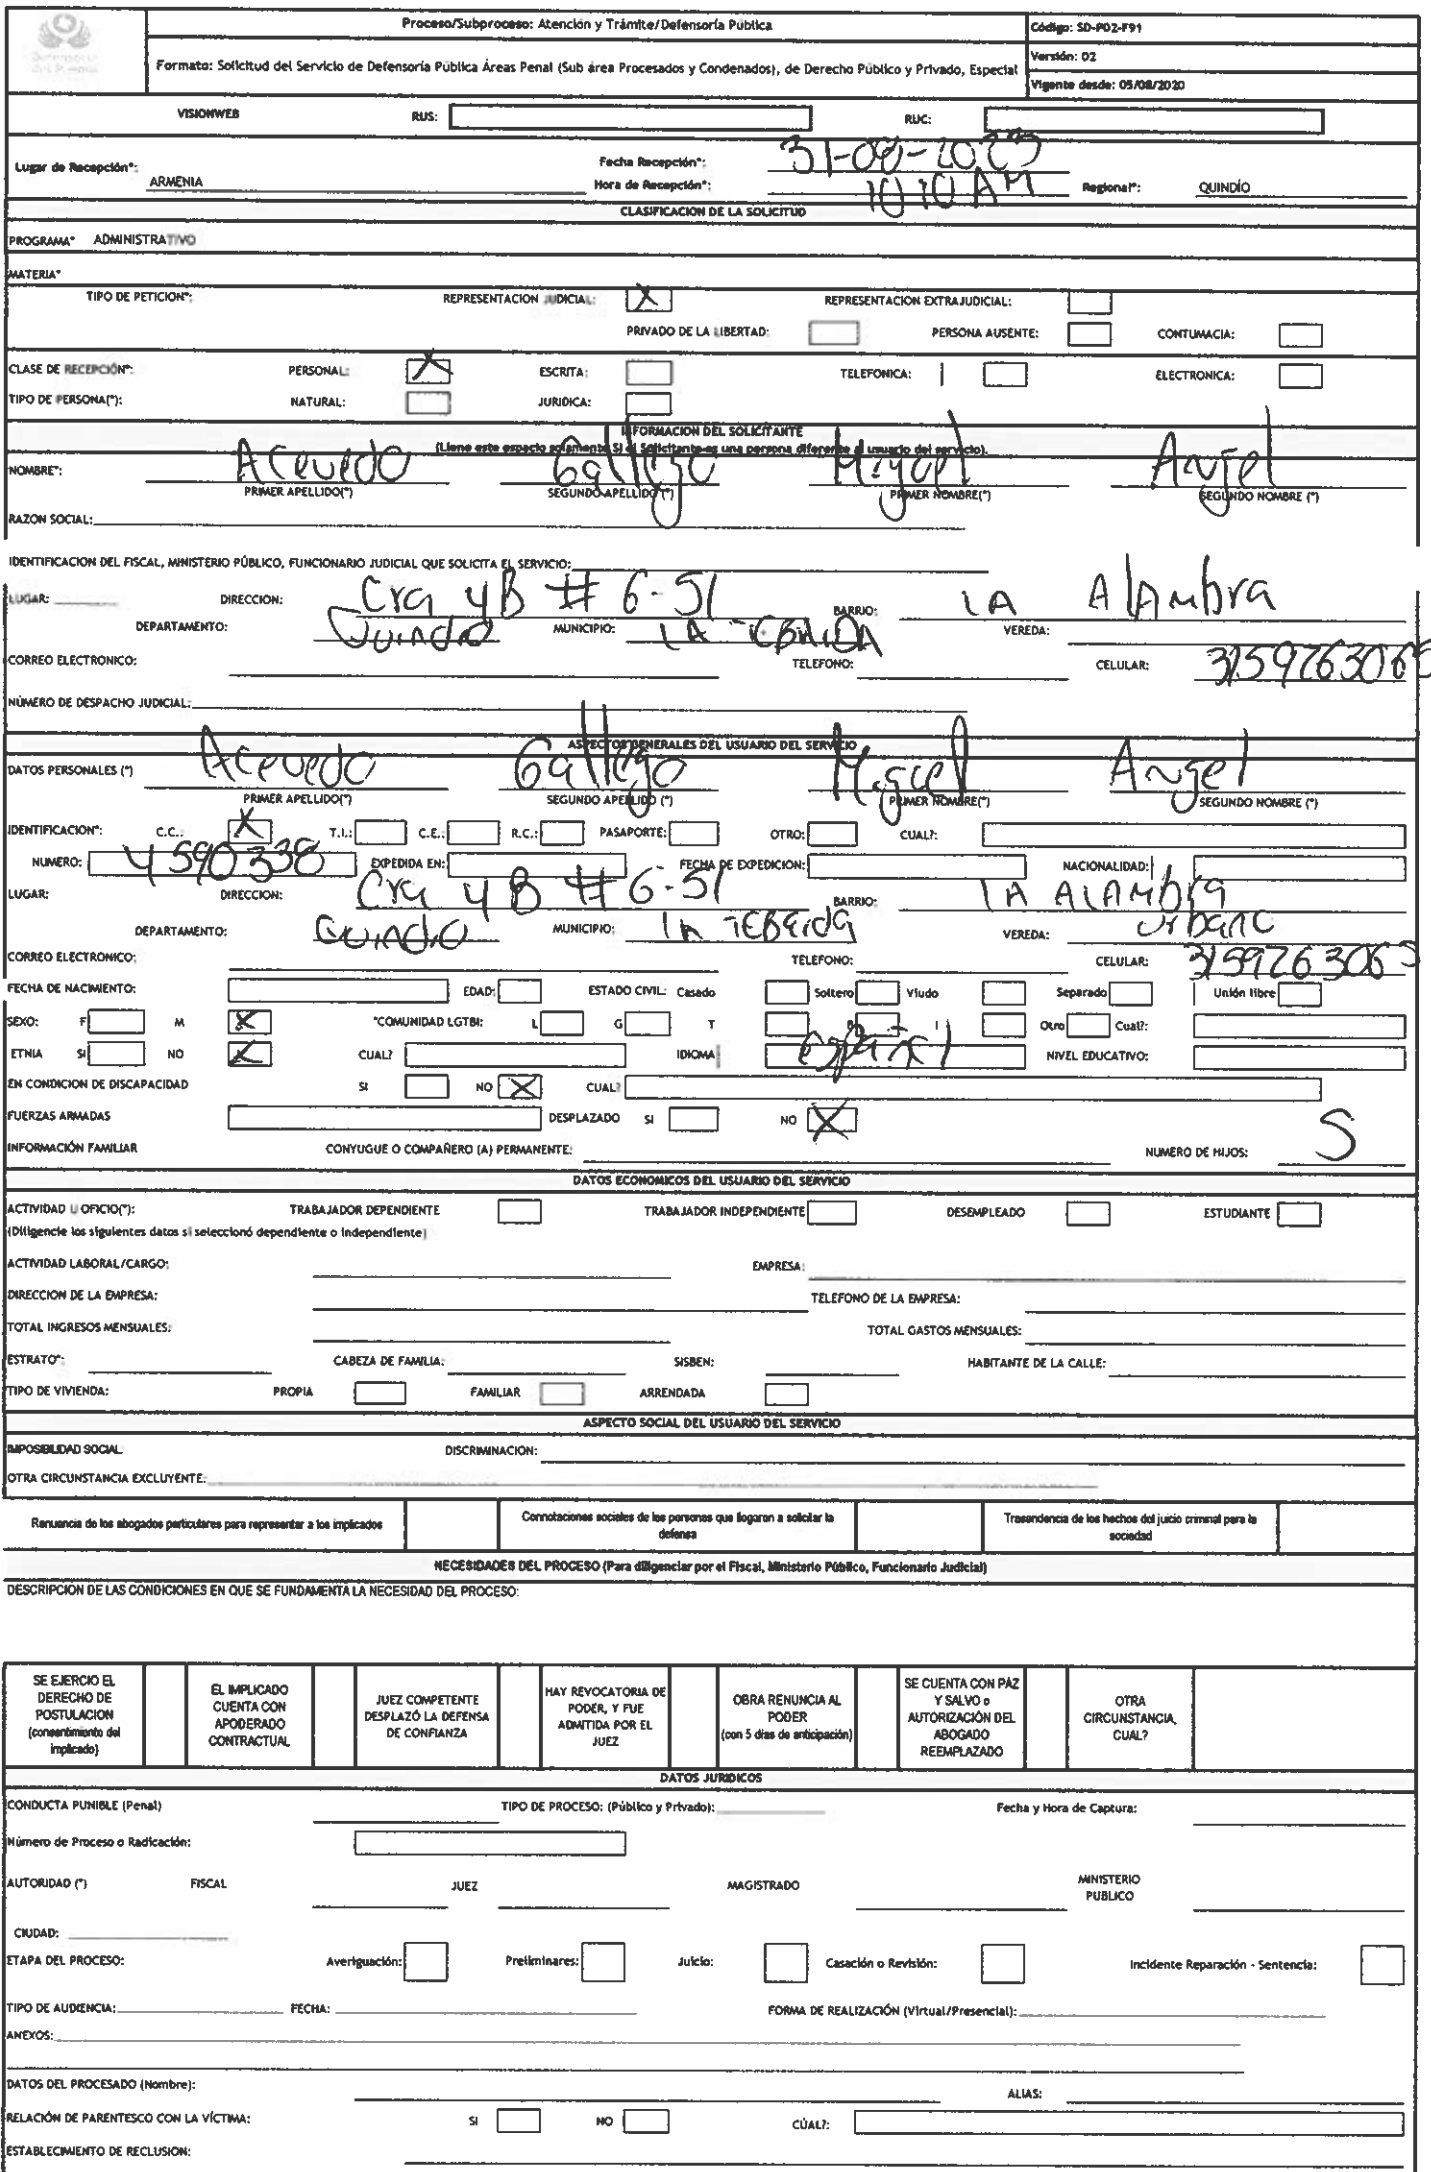 Proceso/Subproceso: Atención y Trámite/Defensoría Pública
Código: SD-P02-F91
Formato: Solicitud del Servicio de Defensoría Pública Áreas Penal (Sub área Procesados y Condenados), de Derecho Público y Privado, Especial
Versión: 02
Vigente desde: 05/08/2020
VISIONWEB RUS: RUC:
Lugar de Recepción*: ARMENIA Fecha Recepción*: 31-08-2023
Hora de Recepción*: 10:10 AM Regional*: QUINDÍO
CLASIFICACION DE LA SOLICITUD
PROGRAMA* ADMINISTRATIVO
MATERIA*
TIPO DE PETICION*: REPRESENTACION JUDICIAL: X REPRESENTACION EXTRAJUDICIAL:
PRIVADO DE LA LIBERTAD: PERSONA AUSENTE: CONTUMACIA:
CLASE DE RECEPCIÓN*: PERSONAL: X ESCRITA: TELEFONICA: ELECTRONICA:
TIPO DE PERSONA(*): NATURAL: JURIDICA:
INFORMACION DEL SOLICITANTE
(Llene este espacio solamente Si el Solicitante es una persona diferente al usuario del servicio).
NOMBRE*: Acevedo Gallego Miguel Angel
PRIMER APELLIDO(*) SEGUNDO APELLIDO (*) PRIMER NOMBRE(*) SEGUNDO NOMBRE (*)
RAZON SOCIAL:
IDENTIFICACION DEL FISCAL, MINISTERIO PÚBLICO, FUNCIONARIO JUDICIAL QUE SOLICITA EL SERVICIO:
LUGAR: DIRECCION: Cra 4B # 6-51 BARRIO: LA AlAmbra
DEPARTAMENTO: Quindio MUNICIPIO: LA TEBAIDA VEREDA:
CORREO ELECTRONICO: TELEFONO: CELULAR: 3159763065
NÚMERO DE DESPACHO JUDICIAL:
ASPECTOS GENERALES DEL USUARIO DEL SERVICIO
DATOS PERSONALES (*) Acevedo Gallego Miguel Angel
PRIMER APELLIDO(*) SEGUNDO APELLIDO (*) PRIMER NOMBRE(*) SEGUNDO NOMBRE (*)
IDENTIFICACION*: C.C.: X T.I.: C.E.: R.C.: PASAPORTE: OTRO: CUAL?:
NUMERO: 4590338 EXPEDIDA EN: FECHA DE EXPEDICION: NACIONALIDAD:
LUGAR: DIRECCION: Cra 4B # 6-51 BARRIO: LA ALAMbra
DEPARTAMENTO: Quindio MUNICIPIO: LA TEBAida VEREDA: urbano
CORREO ELECTRONICO: TELEFONO: CELULAR: 3159763065
FECHA DE NACIMIENTO: EDAD: ESTADO CIVIL: Casado Soltero Viudo Separado Unión libre
SEXO: F M X *COMUNIDAD LGTBI: L G T B I Otro Cual?:
ETNIA SI NO X CUAL? IDIOMA español NIVEL EDUCATIVO:
EN CONDICION DE DISCAPACIDAD SI NO X CUAL?
FUERZAS ARMADAS DESPLAZADO SI NO X
INFORMACIÓN FAMILIAR CONYUGUE O COMPAÑERO (A) PERMANENTE: NUMERO DE HIJOS: 5
DATOS ECONOMICOS DEL USUARIO DEL SERVICIO
ACTIVIDAD U OFICIO(*): TRABAJADOR DEPENDIENTE TRABAJADOR INDEPENDIENTE DESEMPLEADO ESTUDIANTE
(Diligencie los siguientes datos si seleccionó dependiente o independiente)
ACTIVIDAD LABORAL/CARGO: EMPRESA:
DIRECCION DE LA EMPRESA: TELEFONO DE LA EMPRESA:
TOTAL INGRESOS MENSUALES: TOTAL GASTOS MENSUALES:
ESTRATO*: CABEZA DE FAMILIA: SISBEN: HABITANTE DE LA CALLE:
TIPO DE VIVIENDA: PROPIA FAMILIAR ARRENDADA
ASPECTO SOCIAL DEL USUARIO DEL SERVICIO
IMPOSIBILIDAD SOCIAL DISCRIMINACION:
OTRA CIRCUNSTANCIA EXCLUYENTE:
Renuencia de los abogados particulares para representar a los implicados
Connotaciones sociales de las personas que llegaron a solicitar la defensa
Trasendencia de los hechos del juicio criminal para la sociedad
NECESIDADES DEL PROCESO (Para diligenciar por el Fiscal, Ministerio Público, Funcionario Judicial)
DESCRIPCIÓN DE LAS CONDICIONES EN QUE SE FUNDAMENTA LA NECESIDAD DEL PROCESO:
SE EJERCIO EL DERECHO DE POSTULACION (consentimiento del implicado)
EL IMPLICADO CUENTA CON APODERADO CONTRACTUAL
JUEZ COMPETENTE DESPLAZÓ LA DEFENSA DE CONFIANZA
HAY REVOCATORIA DE PODER, Y FUE ADMITIDA POR EL JUEZ
OBRA RENUNCIA AL PODER (con 5 días de anticipación)
SE CUENTA CON PAZ Y SALVO o AUTORIZACIÓN DEL ABOGADO REEMPLAZADO
OTRA CIRCUNSTANCIA, CUAL?
DATOS JURIDICOS
CONDUCTA PUNIBLE (Penal) TIPO DE PROCESO: (Público y Privado): Fecha y Hora de Captura:
Número de Proceso o Radicación:
AUTORIDAD (*) FISCAL JUEZ MAGISTRADO MINISTERIO PUBLICO
CIUDAD:
ETAPA DEL PROCESO: Averiguación: Preliminares: Juicio: Casación o Revisión: Incidente Reparación - Sentencia:
TIPO DE AUDIENCIA: FECHA: FORMA DE REALIZACIÓN (Virtual/Presencial):
ANEXOS:
DATOS DEL PROCESADO (Nombre): ALIAS:
RELACIÓN DE PARENTESCO CON LA VÍCTIMA: SI NO CÚAL?:
ESTABLECIMIENTO DE RECLUSION: